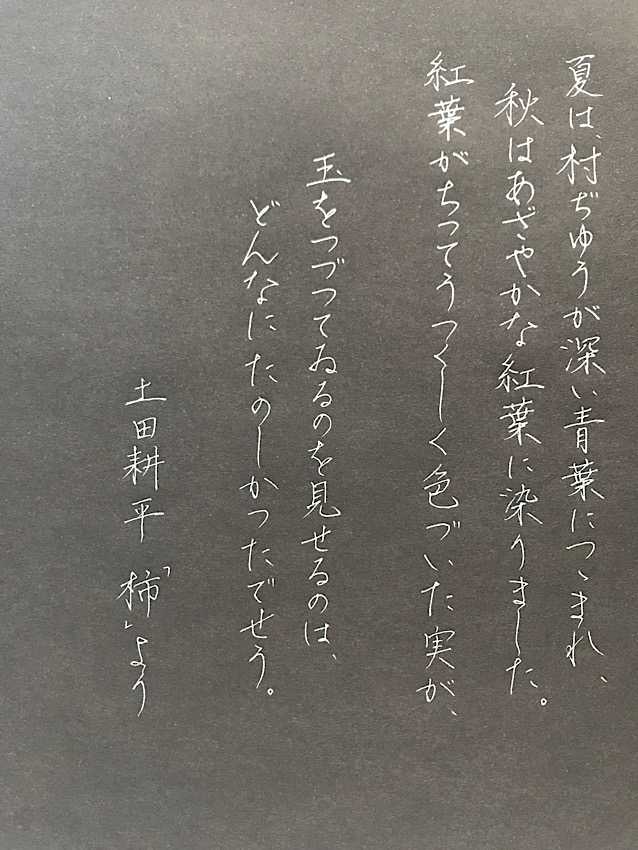 夏は、村ぢゆうが深い青葉につゝまれ、
秋はあざやかな紅葉に染りました。
紅葉がちつてうつくしく色づいた実が、
玉をつづつてゐるのを見せるのは、
どんなにたのしかつたでせう。
土田耕平「柿」より